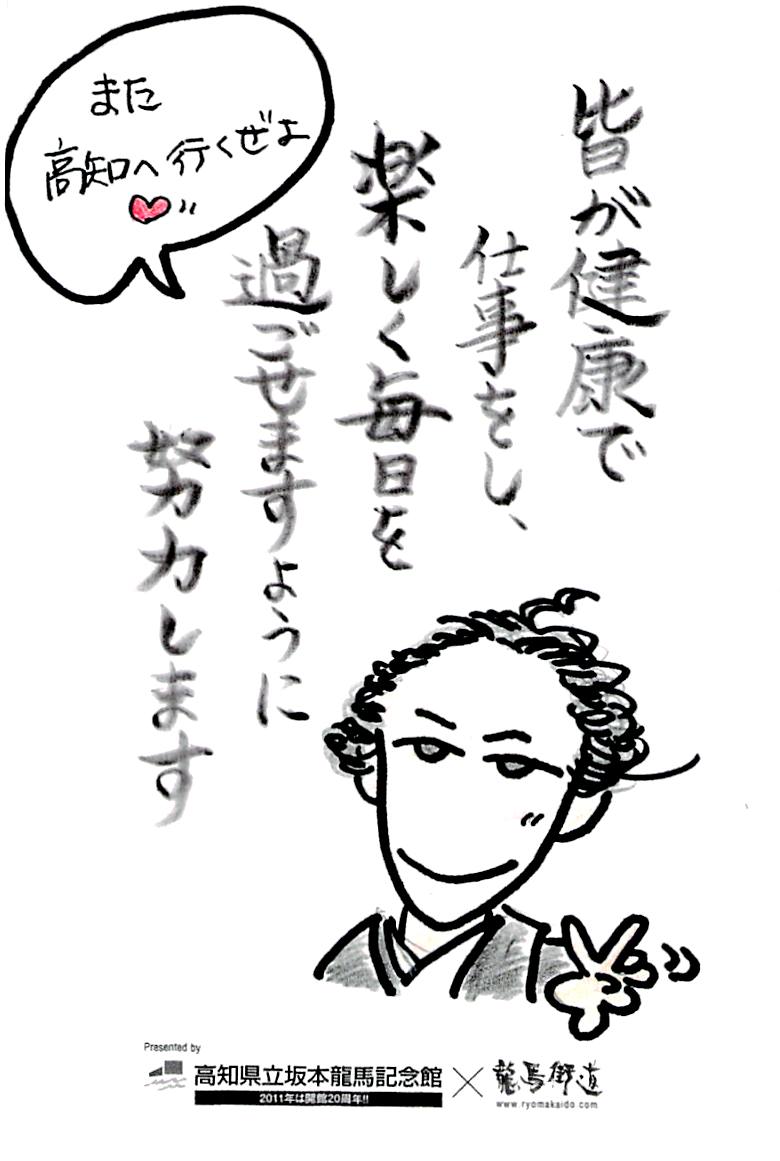 また
高知へ行くぜよ
皆が健康で
仕事をし、
楽しく毎日を
過ごせますように
努力します
Presented by
高知県立坂本龍馬記念館
2011年は開館20周年!!
龍馬街道
www.ryomakaido.com